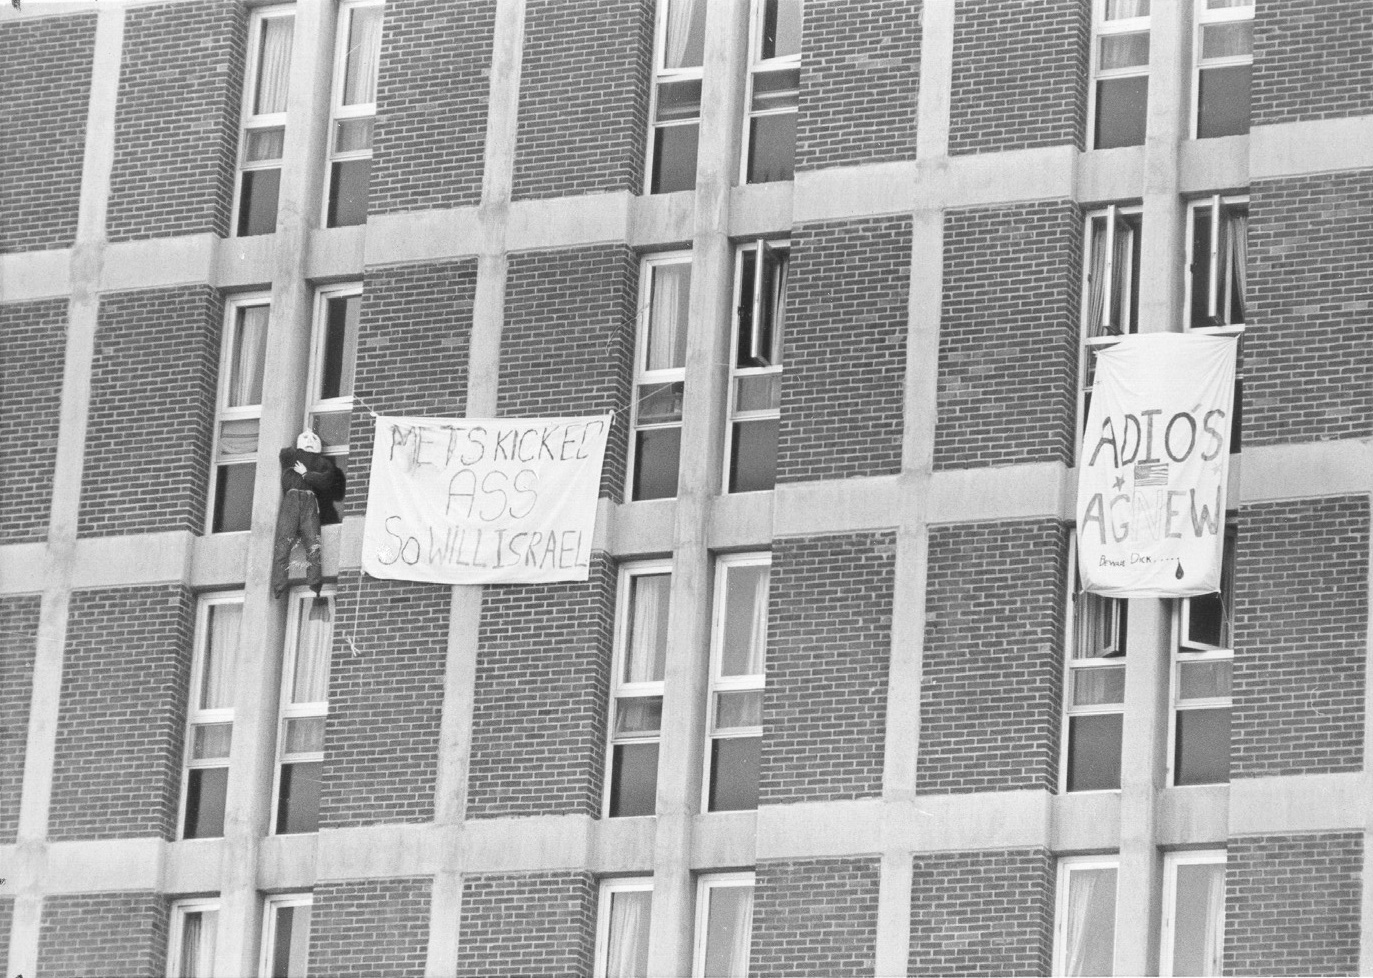 METS KICKED
ASS
SO WILL ISRAEL
ADIÓS
AGNEW
Beware Dick.....